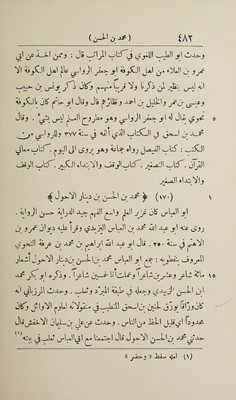 ٤٨٢ (محمد بن الحسن)
وحدث ابو الطيب اللغوي في كتاب المراتب قال: وممن اخذ عن ابي
عمرو بن العلاء من اهل الكوفة ابو جعفر الرواسي عالم اهل الكوفة الا
انه ليس بنظير لمن ذكرنا ولا قريباً منهم وكان ذكر يونس بن حبيب
وعيسى بن عمر والخليل بن احمد ونظائرهم قال وقال ابو حاتم كان بالكوفة
نحوي يقال له ابو جعفر الرواسي وهو مطروح العلم ليس بشيء. وقال ٥
محمد بن اسحق في الكتاب الذي ألفه في سنة ٣٧٧ وللرواسي من
الكتب: كتاب الفيصل رواه جماعة وهو يروى الى اليوم. كتاب معاني
القرآن. كتاب التصغير. كتاب الوقف والابتداء الكبير. كتاب الوقف
والابتداء الصغير
(١٧٠) ﴿ محمد بن الحسن بن دينار الاحول ﴾ ١
ابو العباس كان غزير العلم واسع الفهم جيد الدراية حسن الرواية.
روى عنه ابو عبد الله محمد بن العباس اليزيدي وقرأ عليه ديوان عمرو بن
الاهتم في سنة ٢٥٠. قال ابو عبد الله ابراهيم بن محمد بن عرفة النحوي
المعروف بنفطويه: جمع ابو العباس محمد بن الحسن بن دينار الاحول أشعار
مائة شاعر وعشرين شاعراً وعملت أنا خمسين شاعراً. وذكره ابو بكر محمد ١٥
ابن الحسن الزبيدي وجعله في طبقة المبرّد وثعلب. وحدث المرزباني انه
كان ورّاقاً يورّق لحنين بن اسحق المتطبب في منقولاته لعلوم الاوائل وكان
محدوداً أي قليل الحظ من الناس. وحدث عن علي بن سليمان الاخفش قال
حدثني محمد بن الحسن الاحول قال اجتمعنا مع ابي العباس ثعلب في بيته (١)
(١) لعله سقط « وحضر »